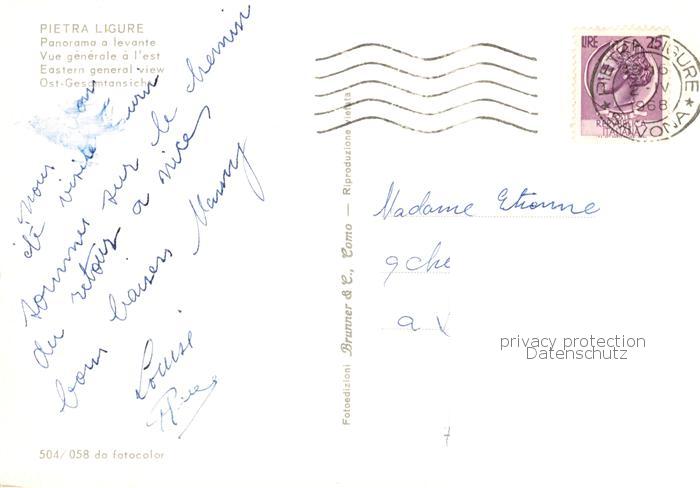 PIETRA LIGURE
Panorama a levante
Vue générale à l'est
Eastern general view
Ost-Gesamtansicht
nous
été visiter
sommes sur le chemin
du retour a nice
bons baisers Mamy
Louise
504/058 da fotocolor
Fotoedizioni Brunner & C., Como — Riproduzione vietata
LIRE 25
PIETRA LIGURE
1968
* SAVONA *
Madame Etienne
9 che
a v
privacy protection
Datenschutz
7